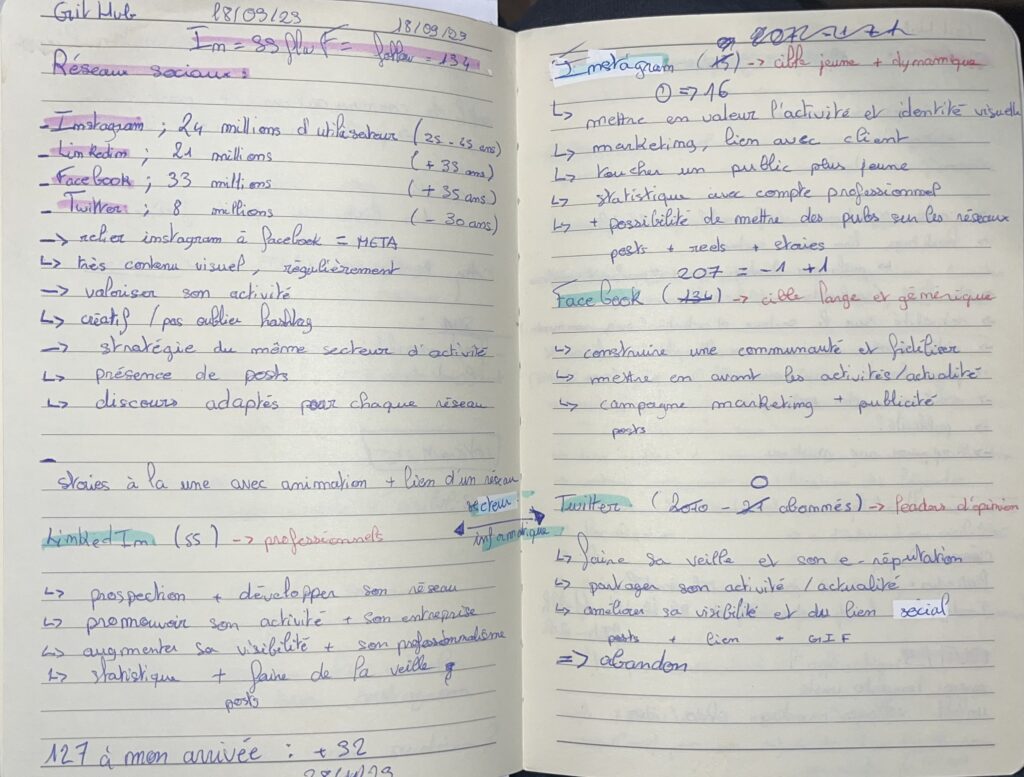 Git Hub 18/09/23 18/09/23
In = 99 flw F = follow = 134
Réseaux sociaux :
- Instagram ; 24 millions d'utilisateur (25-45 ans)
- Linkedin ; 21 millions (+ 35 ans)
- Facebook ; 33 millions (+ 35 ans)
- Twitter ; 8 millions (- 30 ans)
-> relier instagram à facebook = META
↳ très contenu visuel, régulièrement
-> valoriser son activité
↳ créatif / pas oublier hashtag
-> stratégie du même secteur d'activité
↳ présence de posts
↳ discours adaptés pour chaque réseau
-
stories à la une avec animation + lien d'un réseau
LinkedIn (55) -> professionnels
↳ prospection + développer son réseau
↳ promouvoir son activité + son entreprise
↳ augmenter sa visibilité + son professionnalisme
↳ statistique + faire de la veille
posts
127 à mon arrivée : + 32
secteur :
informatique
Instagram (15) -> cible jeune + dynamique
① => 16
↳ mettre en valeur l'activité et identité visuelle
↳ marketing, lien avec client
↳ toucher un public plus jeune
↳ statistique avec compte professionnel
↳ + possibilité de mettre des pubs sur les réseaux
posts + reels + stories
207 = -1 +1
Facebook (134) -> cible large et générique
↳ construire une communauté et fidéliser
↳ mettre en avant les activités/actualité
↳ campagne marketing + publicité
posts
0
Twitter (2010 - 21 abonnés) -> leaders d'opinion
↳ faire sa veille et son e-réputation
↳ partager son activité / actualité
↳ améliorer sa visibilité et du lien social
posts + lien + GIF
=> abandon